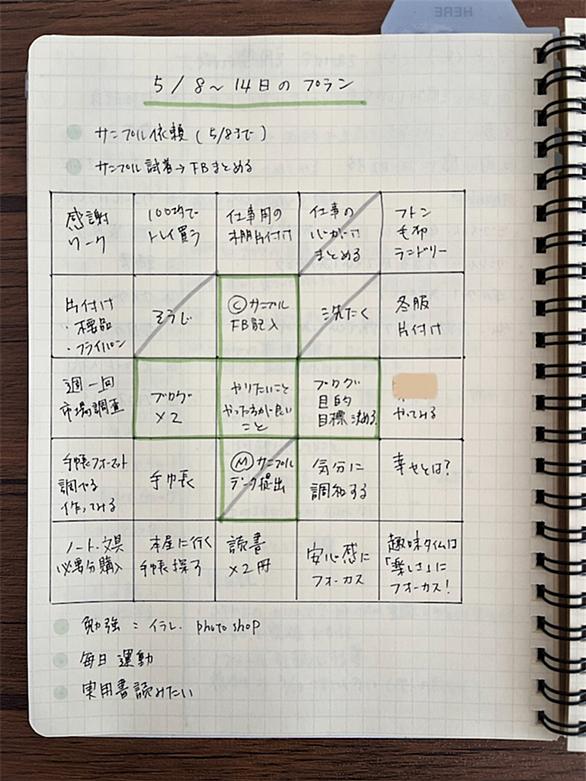 HERE
5/8~14日のプラン
サンプル依頼(5/8まで)
サンプル試着→FBまとめる
感謝
ワーク
100均で
トレイ買う
仕事用の
本棚片付け
仕事の
心がけ
まとめる
フトン
毛布
ランドリー
片付け
・フライパン
そうじ
Ⓒサンプル
FB記入
洗たく
冬服
片付け
週一回
市場調査
ブログ
×2
やりたいこと
やった方が良い
こと
ブログ
目的
目標決める
やってみる
手帳フォーマット
調べる
作ってみる
手帳
Ⓜサンプル
データ提出
気分に
調和する
幸せとは?
ノート・文具
必要分購入
本屋に行く
手帳探う
読書
×2冊
安心感に
フォーカス
趣味タイムは
「楽しさ」に
フォーカス!
勉強:イラレ photoshop
毎日運動
実用書読みたい